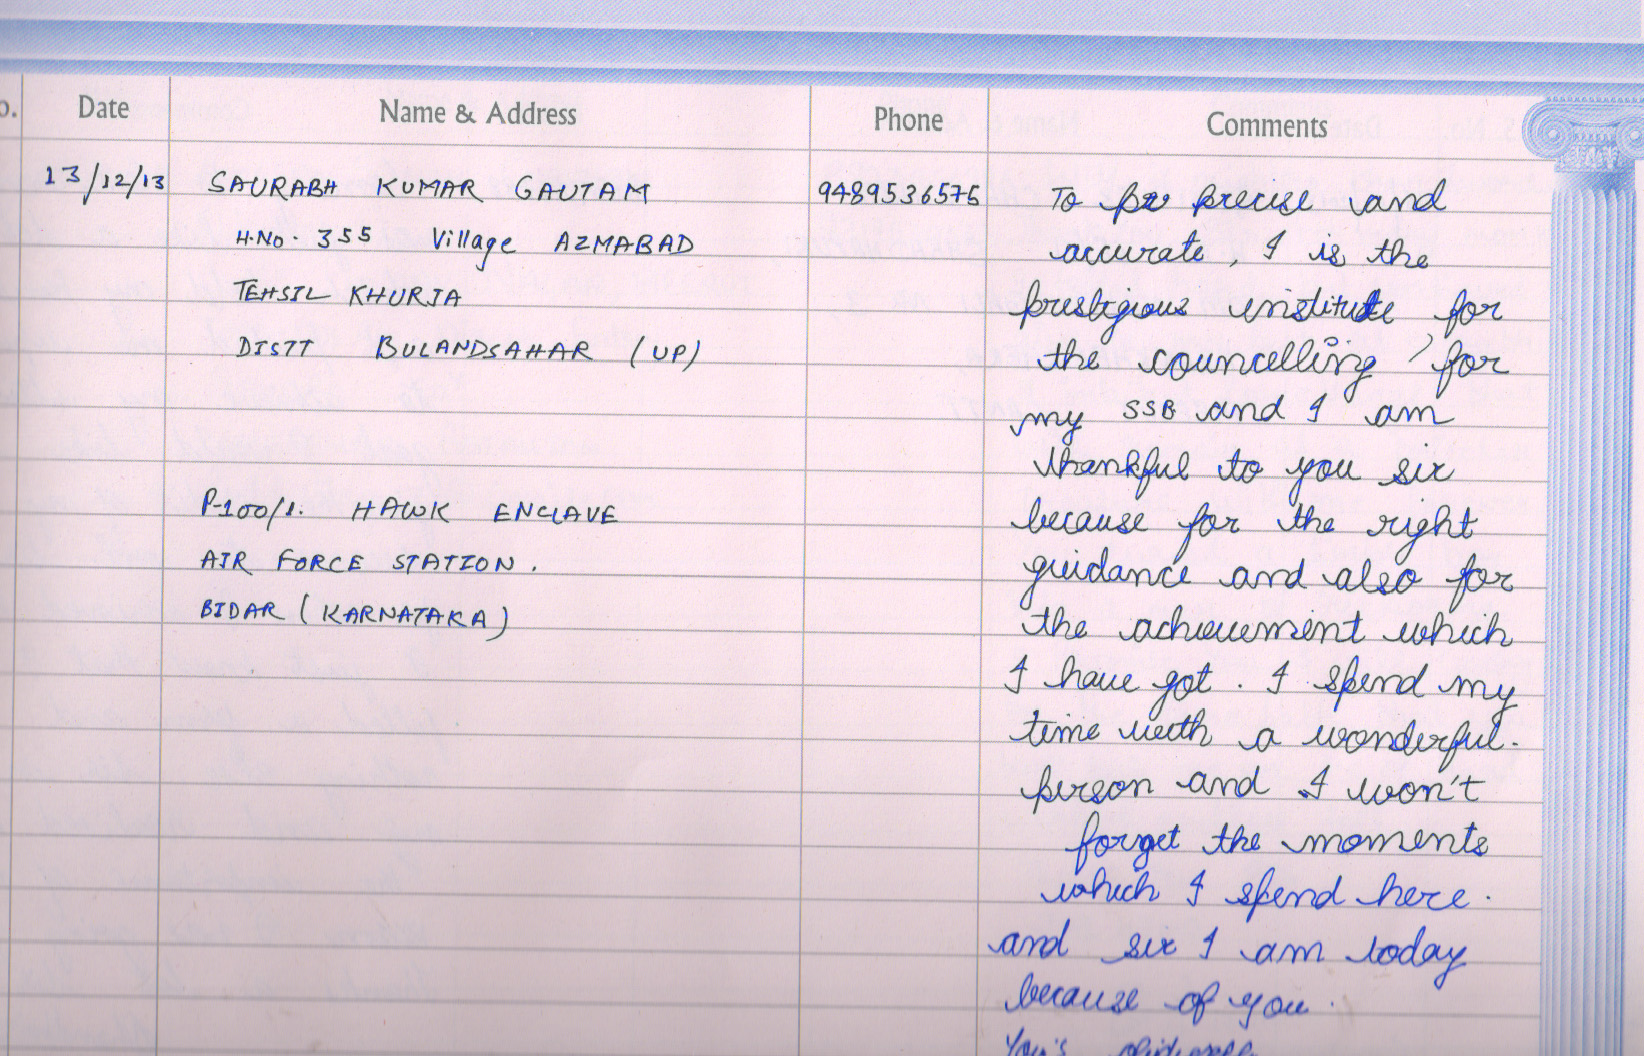 o. Date Name & Address Phone Comments
13/12/13 SAURABH KUMAR GAUTAM 9489536575 To pr precise and
H.No. 355 Village AZMABAD accurate, I is the
TEHSIL KHURJA prestigious institute for
DISTT BULANDSAHAR (UP) the councelling, for
my SSB and I am
thankful to you sir
P-100/1. HAWK ENCLAVE because for the right
AIR FORCE STATION. guidance and also for
BIDAR (KARNATAKA) the achievement which
I have got. I spend my
time with a wonderful.
person and I won't
forget the moments
which I spend here.
and sir I am today
because of you.